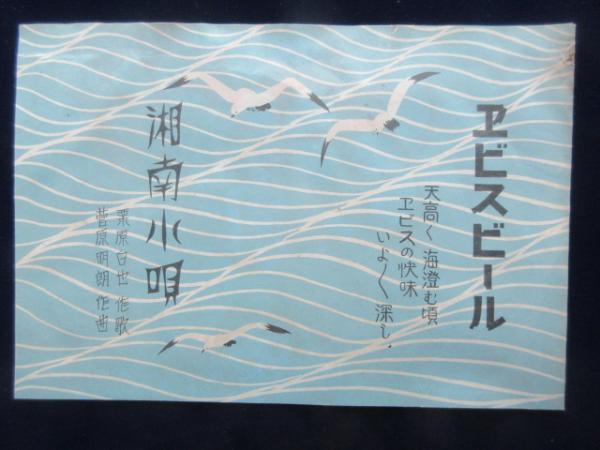 ヱビスビール
天高く 海澄む頃
ヱビスの快味
いよ〱深し．
湘南小唄
栗原白也 作歌
菅原明朗 作曲